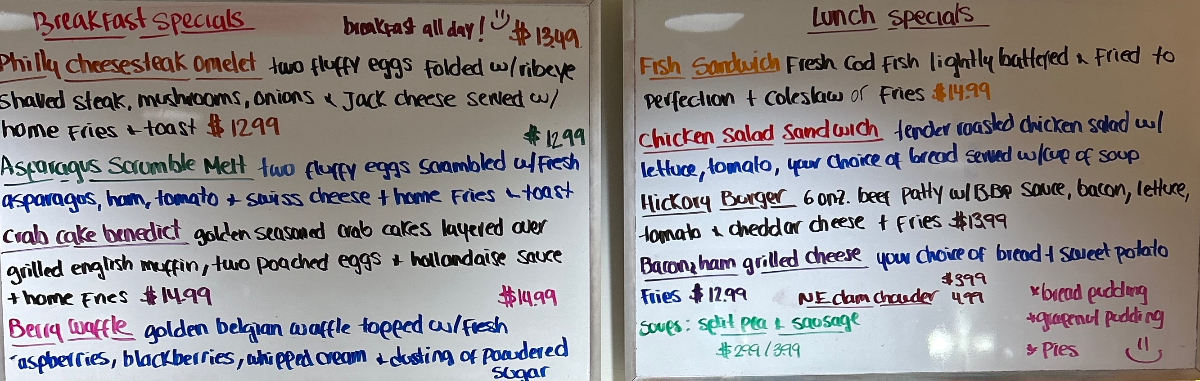 Breakfast Specials
breakfast all day! $13.49
Philly cheesesteak omelet two fluffy eggs folded w/ribeye
shaved steak, mushrooms, onions & Jack cheese served w/
home fries & toast $12.99
$12.99
Asparagus Scramble Melt two fluffy eggs scrambled w/fresh
asparagus, ham, tomato + swiss cheese + home fries & toast
Crab cake benedict golden seasoned crab cakes layered over
grilled english muffin, two poached eggs + hollandaise sauce
+ home fries $14.99
$14.99
Berry Waffle golden belgian waffle topped w/fresh
raspberries, blackberries, whipped cream + dusting of powdered
sugar
Lunch Specials
Fish Sandwich Fresh Cod fish lightly battered & Fried to
perfection + Coleslaw or Fries $14.99
Chicken Salad Sandwich tender roasted chicken salad w/
lettuce, tomato, your choice of bread served w/cup of soup
Hickory Burger 6 onz. beef patty w/BBQ sauce, bacon, lettuce,
tomato & cheddar cheese + fries $13.99
Bacon, ham grilled cheese your choice of bread + sweet potato
fries $12.99
NE clam chowder $3.99
4.99
Soups: split pea & sausage
$2.99/3.99
*bread pudding
*grapenut pudding
*Pies